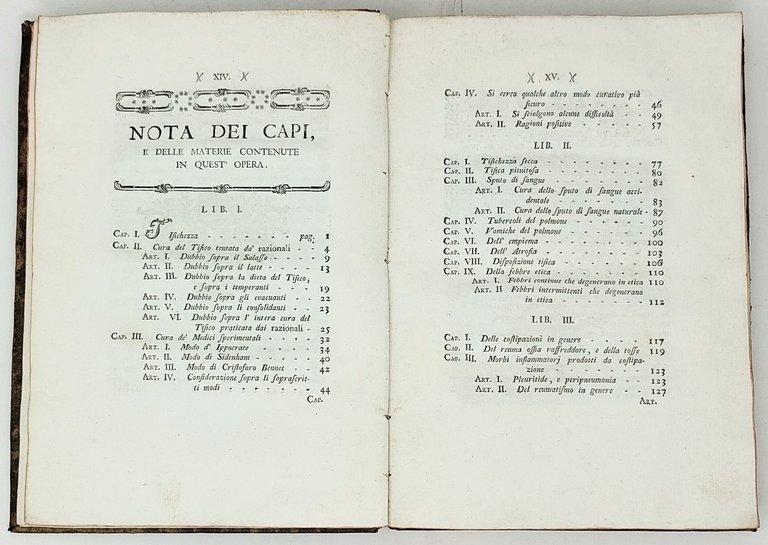 )( XIV. )(
NOTA DEI CAPI,
E DELLE MATERIE CONTENUTE
IN QUEST' OPERA.
LIB. I.
CAP. I. Tisichezza - - - - - - - - pag. 1
CAP. II. Cura del Tisico tentata da' razionali - - 4
ART. I. Dubbio sopra il Salasso - - - - - 9
ART. II. Dubbio sopra il latte - - - - - 13
ART. III. Dubbio sopra la dieta del Tisico,
e sopra i temperanti - - - - 19
ART. IV. Dubbio sopra gli evacuanti - - 22
ART. V. Dubbio sopra li consolidanti - - 23
ART. VI. Dubbio sopra l' intera cura del
Tisico praticata dai razionali - 25
CAP. III. Cura de' Medici sperimentali - - - - 32
ART. I. Modo d' Ippocrate - - - - - - 34
ART. II. Modo di Sidenham - - - - - 40
ART. III. Modo di Cristoforo Bennet - - - 42
ART. IV. Considerazione sopra li soprascrit-
ti modi - - - - - - - - 44
CAP.
)( XV. )(
CAP. IV. Si cerca qualche altro modo curativo più
sicuro - - - - - - - - 46
ART. I. Si sciolgono alcune difficoltà - - 49
ART. II. Ragioni positive - - - - - - 57
LIB. II.
CAP. I. Tisichezza secca - - - - - - - - 77
CAP. II. Tisica pituitosa - - - - - - - - 80
CAP. III. Sputo di sangue - - - - - - - - 82
ART. I. Cura dello sputo di sangue acci-
dentale - - - - - - - - 83
ART. II. Cura dello sputo di sangue naturale - 87
CAP. IV. Tubercoli del polmone - - - - - - 90
CAP. V. Vomiche del polmone - - - - - - 96
CAP. VI. Dell' empiema - - - - - - - - 100
CAP. VII. Dell' Atrofia - - - - - - - - 103
CAP. VIII. Disposizione tisica - - - - - - 106
CAP. IX. Della febbre etica - - - - - - - 110
ART. I. Febbri continue che degenerano in etica 110
ART. II Febbri intermittenti che degenerano
in etica - - - - - - - - 112
LIB. III.
CAP. I. Delle costipazioni in genere - - - - - 117
CAP. II. Del reuma ossia raffreddore, e della tosse 119
CAP. III. Morbi inflammatorj prodotti da costipa-
zione - - - - - - - - 123
ART. I. Pleuritide, e peripneumonia - - - 123
ART. II. Del reumatismo in genere - - 127
ART.